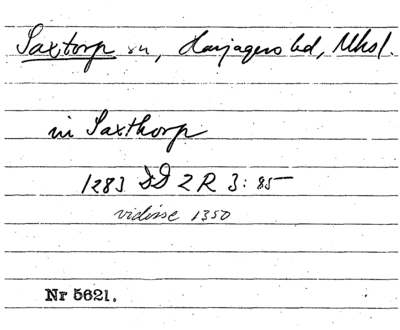 Saxtorp sn, Harjagers hd, Mhsl.
in Saxthorp
1283 DD 2 R 3: 85
vidisse 1350
Nr 5621.